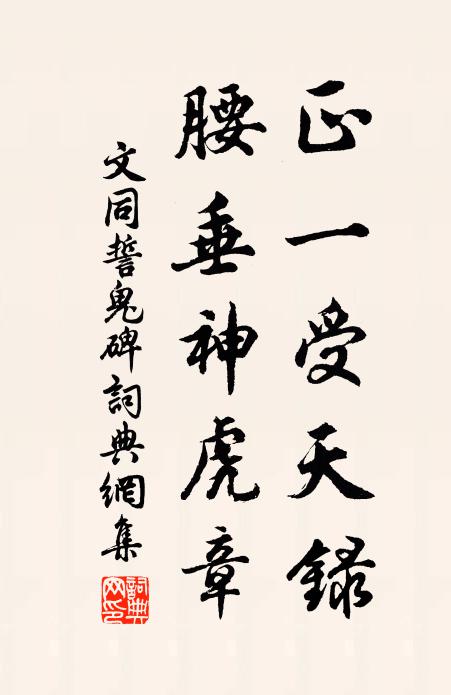 正一受天録
腰垂神虎章
文同誓鬼碑詞典網集
詞典網印